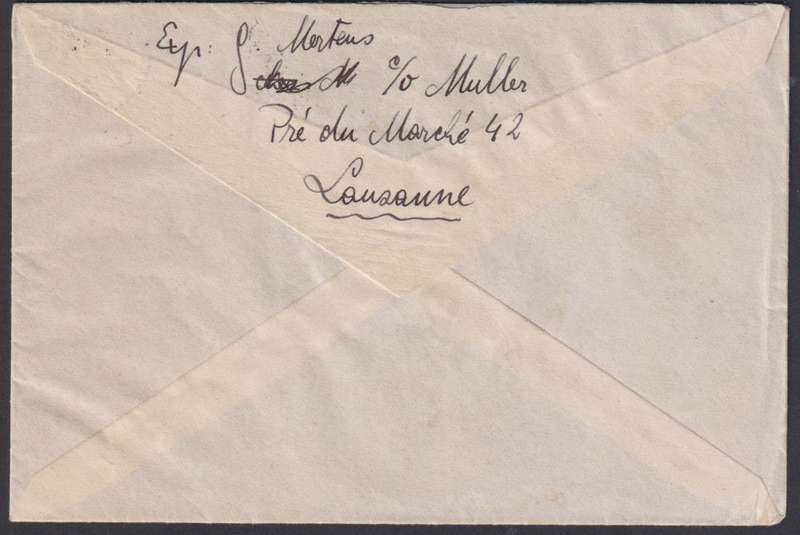 Exp: G. Mertens
c/o Muller
Pré du Marché 42
Lausanne